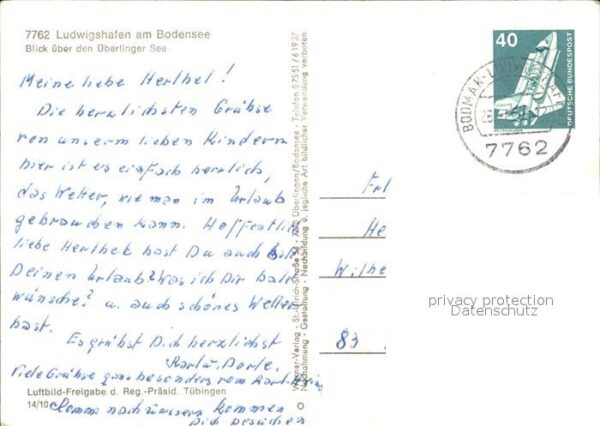 7762 Ludwigshafen am Bodensee
Blick über den Überlinger See
Meine liebe Herthel!
Die herzlichsten Grühse
von unserm lieben Kindern
hier ist es einfach herrlich,
das Wetter, wie man im Urlaub
gebrauchen kann. Hoffentlich
liebe Herthel hast Du auch
Deinen Urlaub? Was ich Dir
wünsche? u. auch schönes Wetter
hast.
Es grübst Dich herzlichst
Karl u. Dorle.
Viele Grühse ganz besonders vom Karl
Luftbild-Freigabe d. Reg.-Präsid. Tübingen
14/10
Komme nach kommen
Dich besuchen
Überlingen/Bodensee - Telefon 07551/61937
Nachahmung - Gestaltung - Nachbildung u. jegliche Art bildlicher Verwertung verboten
40
DEUTSCHE BUNDESPOST
7762
Frl
He
Wilhe
83
privacy protection
Datenschutz